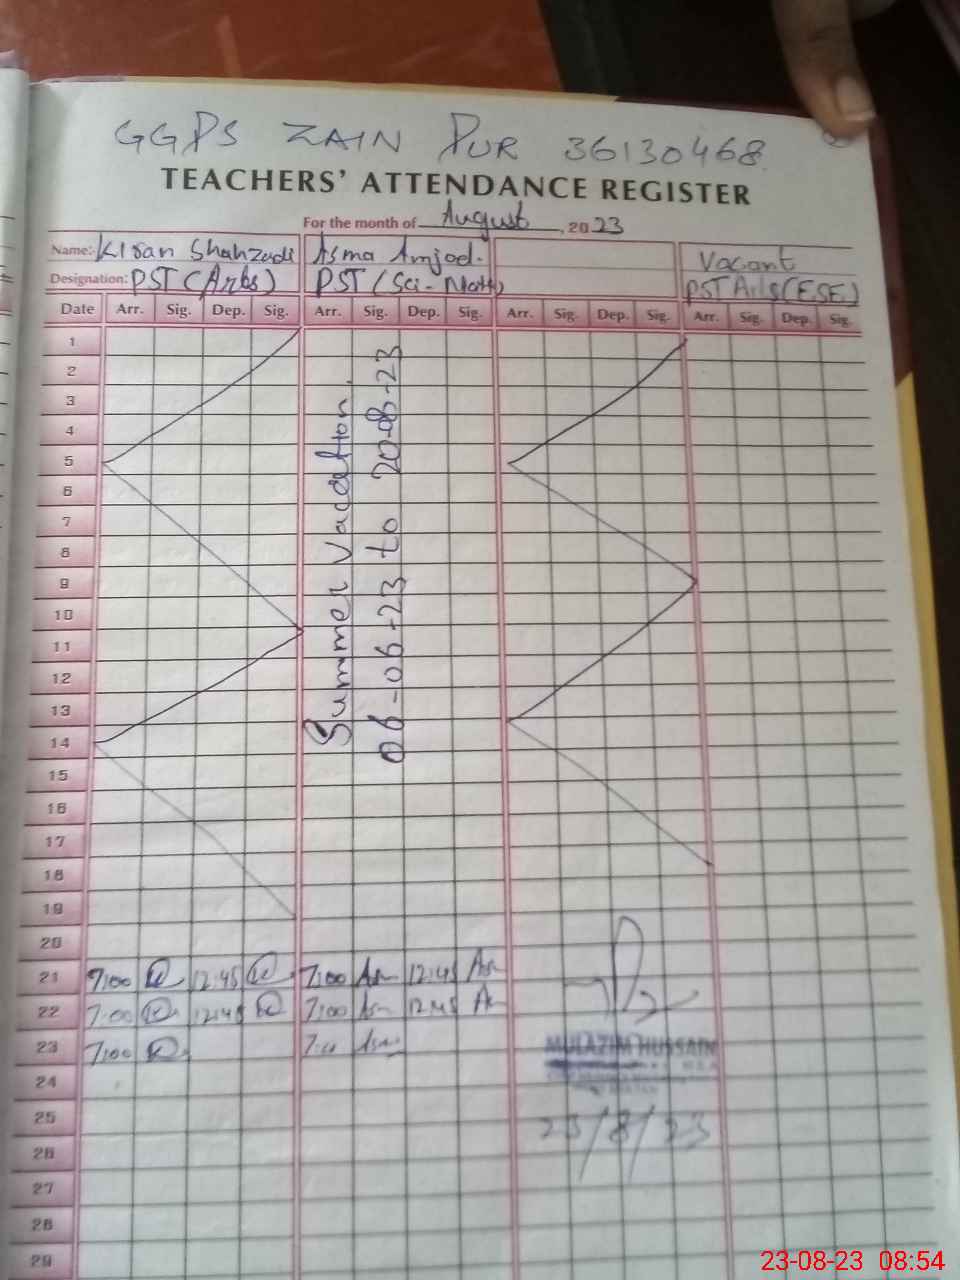 GGPS ZAIN PUR 36130468
TEACHERS' ATTENDANCE REGISTER
For the month of August, 2023
Name:- Kiran Shahzadi Asma Amjad. Vacant
Designation: PST (Arts) PST (Sci-Math) PST Arts (ESE)
Date Arr. Sig. Dep. Sig. Arr. Sig. Dep. Sig. Arr. Sig. Dep. Sig. Arr. Sig. Dep. Sig.
1
2
3
4
5
6
7
8
9
10
11
12
13
14
15
16
17
18
19
20
Summer Vacation
06-06-23 to 20-08-23
21 7:00 12:45 7:00 Asm 12:45 Asm
22 7:00 12:45 7:00 Asm 12:45 As
23 7:00 7:00 Asm
MULAZIM HUSSAIN
24
25
23/8/23
26
27
28
29
23-08-23 08:54